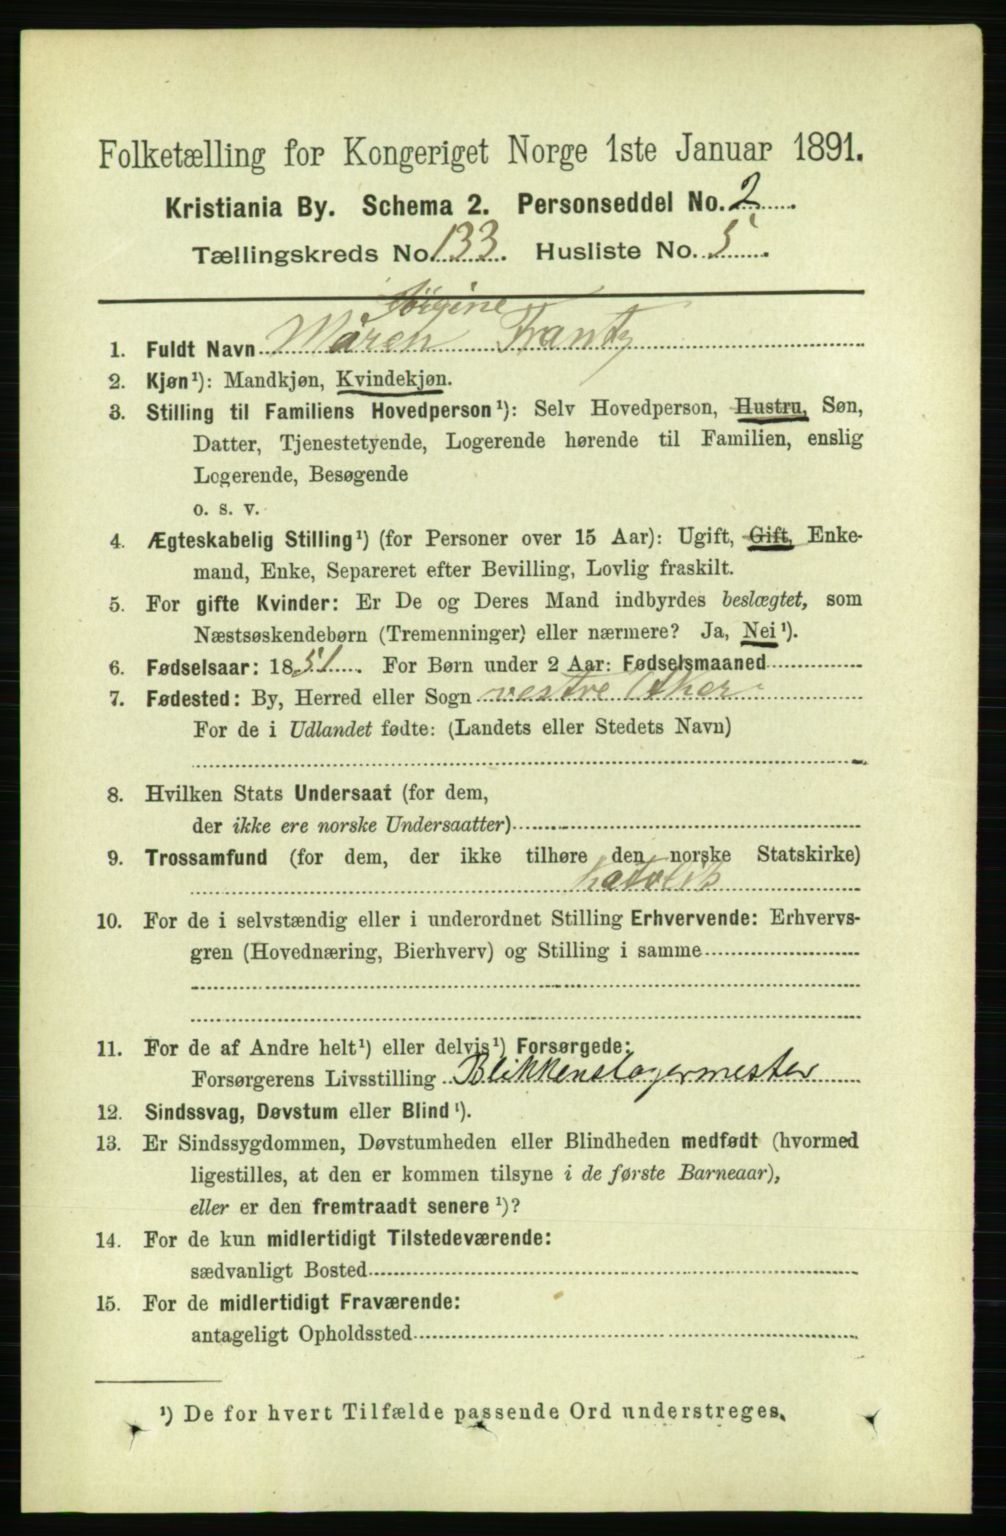 Folketælling for Kongeriget Norge 1ste Januar 1891.
Kristiania By. Schema 2. Personseddel No. 2
Tællingskreds No. 133. Husliste No. 5
Jörgine
1. Fuldt Navn Maren Frantz
2. Kjøn¹): Mandkjøn, Kvindekjøn.
3. Stilling til Familiens Hovedperson¹): Selv Hovedperson, Hustru, Søn,
Datter, Tjenestetyende, Logerende hørende til Familien, enslig
Logerende, Besøgende
o. s. v.
4. Ægteskabelig Stilling¹) (for Personer over 15 Aar): Ugift, Gift, Enke-
mand, Enke, Separeret efter Bevilling, Lovlig fraskilt.
5. For gifte Kvinder: Er De og Deres Mand indbyrdes beslægtet, som
Næstsøskendebørn (Tremenninger) eller nærmere? Ja, Nei¹).
6. Fødselsaar: 1851. For Børn under 2 Aar: Fødselsmaaned
7. Fødested: By, Herred eller Sogn vestre Aker
For de i Udlandet fødte: (Landets eller Stedets Navn)
8. Hvilken Stats Undersaat (for dem,
der ikke ere norske Undersaatter)
9. Trossamfund (for dem, der ikke tilhøre den norske Statskirke)
Katolik
10. For de i selvstændig eller i underordnet Stilling Erhvervende: Erhvervs-
gren (Hovednæring, Bierhverv) og Stilling i samme
11. For de af Andre helt¹) eller delvis¹) Forsørgede:
Forsørgerens Livsstilling Blikkenslagermester
12. Sindssvag, Døvstum eller Blind¹).
13. Er Sindssygdommen, Døvstumheden eller Blindheden medfødt (hvormed
ligestilles, at den er kommen tilsyne i de første Barneaar),
eller er den fremtraadt senere¹)?
14. For de kun midlertidigt Tilstedeværende:
sædvanligt Bosted
15. For de midlertidigt Fraværende:
antageligt Opholdssted
¹) De for hvert Tilfælde passende Ord understreges.